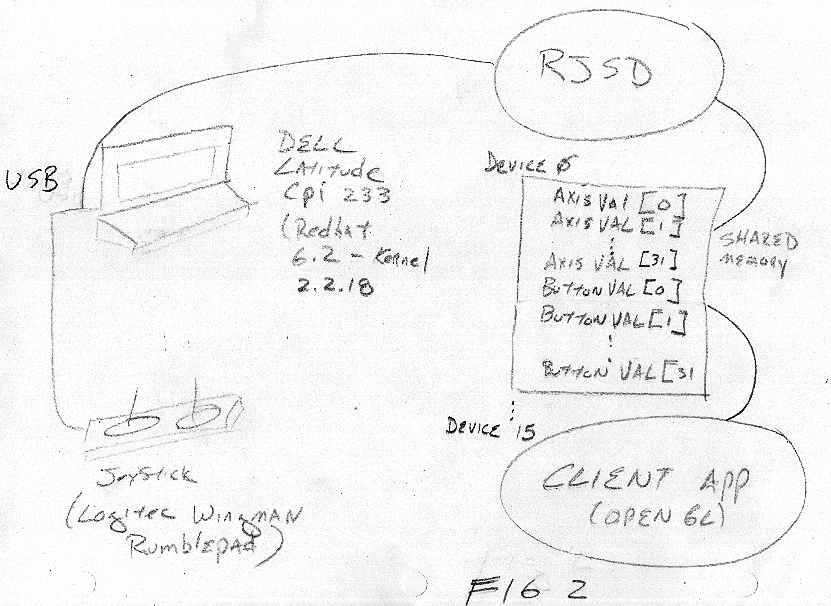 RJSD
USB
DELL
LATITUDE
Cpi 233
(Redhat
6.2 - Kernel
2.2.18
DEVICE 0
AXIS VAL [0]
AXIS VAL [1]
AXIS VAL [31]
BUTTON VAL [0]
BUTTON VAL [1]
BUTTON VAL [31
SHARED
MEMORY
DEVICE 15
JoySTick
(Logitec WingMAN
RumblEPAd)
CLIENT APP
(OPEN GL)
FIG 2